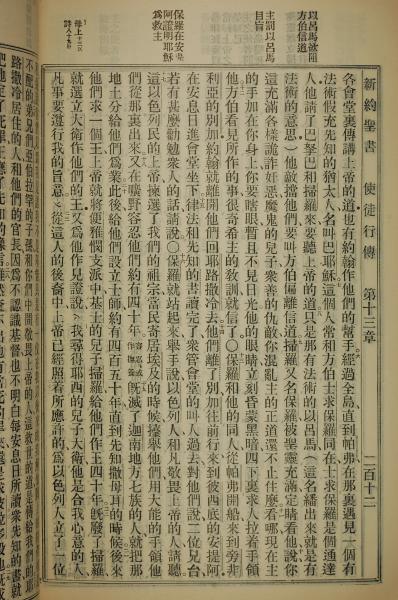 新約聖書 使徒行傳 第十三章 二百十二
以呂馬敵阻
方伯信道
主罰以呂馬
目盲
保羅在安提
阿證明耶穌
為救主
各會堂裏傳講上帝的道也有約翰作他們的幫手經過全島直到帕弗在那裏遇見一個有
法術假充先知的猶太人名叫巴耶穌這個人常和方伯士求保羅同在士求保羅是個通達
人他請了巴拏巴和掃羅來要聽上帝的道只是那有法術的以呂馬(這名繙出來就是有
法術的意思)他敵擋他們要叫方伯偏離信道掃羅又名保羅被聖靈充滿定睛看他說你
這充滿各樣詭詐奸惡魔鬼的兒子衆善的仇敵你混亂主的正道還不止住麼看哪現在主
的手加在你身上你要瞎眼暫且不見日光他的眼睛立刻昏蒙黑暗四下裏求人拉着手領
他方伯看見所作的事很希奇主的教訓就信了○保羅和他的同人從帕弗開船來到旁非
利亞的別加約翰就離開他們回耶路撒冷去他們離了別加往前行來到彼西底的安提阿
在安息日進會堂坐下律法和先知的書讀完了衆管會堂的叫人過去對他們說二位兄台
若有甚麼勸勉衆人的話請說○保羅就站起來舉手說以色列人和凡敬畏上帝的人請聽
這以色列民的上帝揀選了我們的祖宗當民寄居埃及的時候擡舉他們用大能的手領他
們從那裏出來又在曠野容忍他們約有四十年既滅了迦南地方七族的人就把那
地土分給他們為業此後給他們設立士師約有四百五十年直到先知撒母耳的時候後來
他們求一個王上帝就將便雅憫支派中基士的兒子掃羅給他們作王四十年旣廢了掃羅
就選立大衛作他們的王又為他作見證說我尋得耶西的兒子大衛他是合我心意的人
凡事要遵行我的旨意從這人的後裔中上帝已經照着所應許的為以色列人立了一位